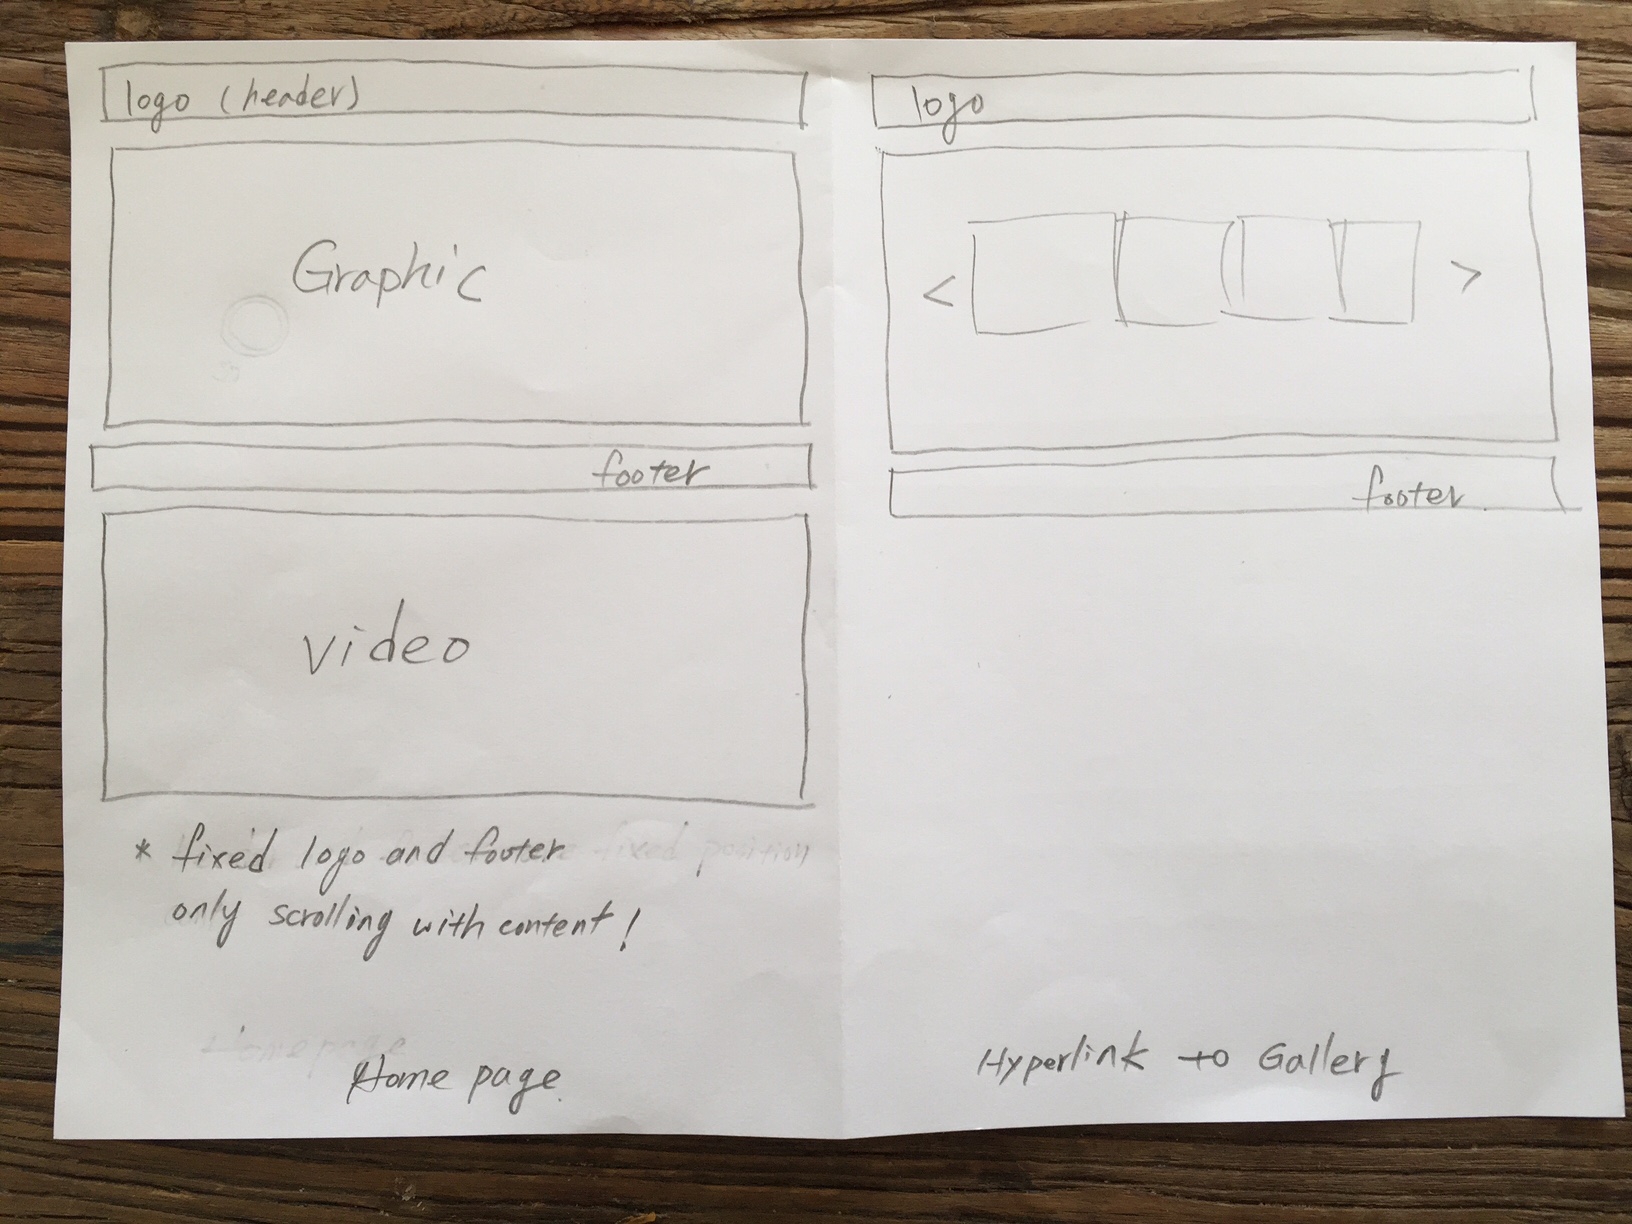 logo (header)
Graphic
footer
video
* fixed logo and footer
fixed position
only scrolling with content!
Homepage
Home page.
logo
< >
footer.
Hyperlink to Gallery